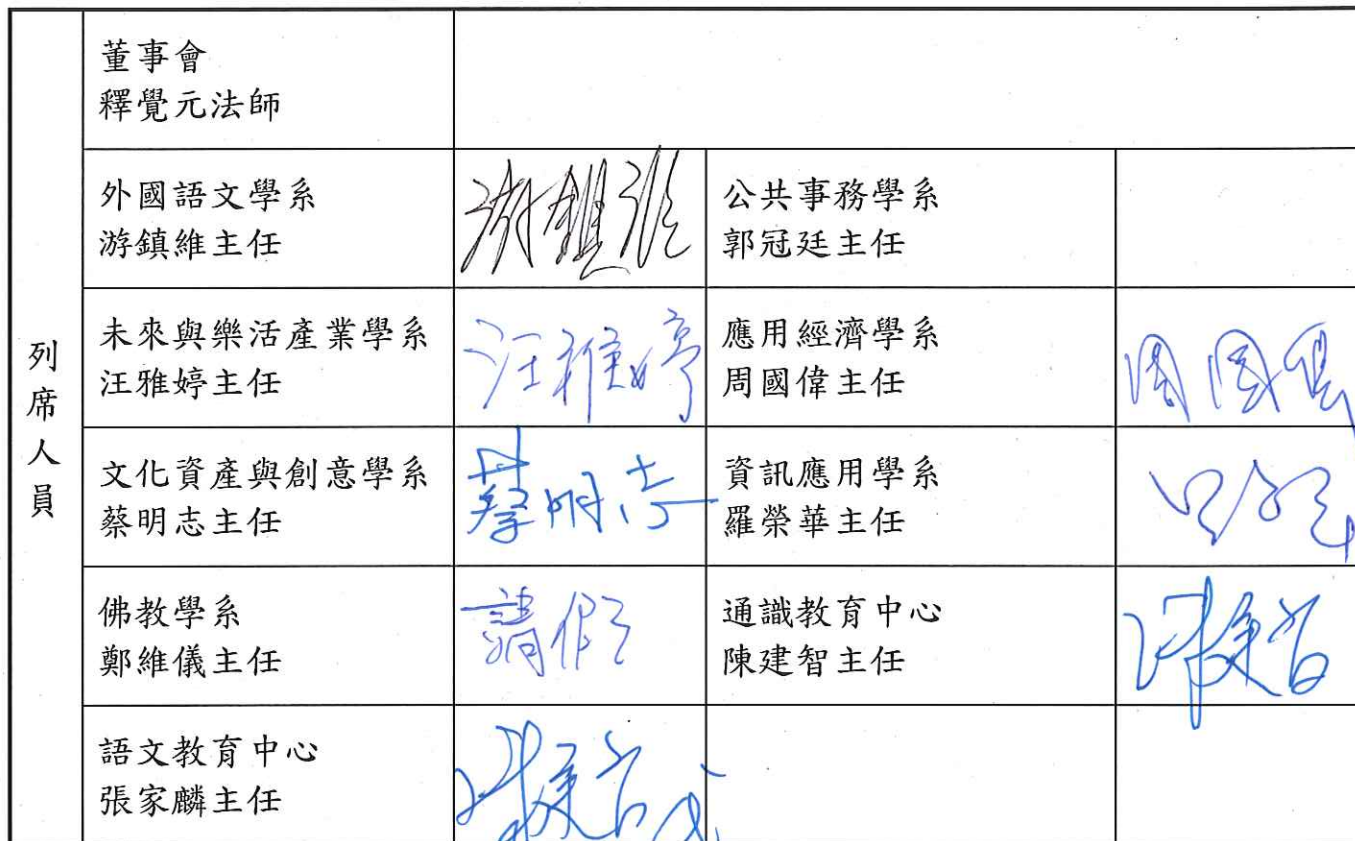 列席人員
董事會
釋覺元法師
外國語文學系
游鎮維主任
游鎮維
公共事務學系
郭冠廷主任
未來與樂活產業學系
汪雅婷主任
汪雅婷
應用經濟學系
周國偉主任
周國偉
文化資產與創意學系
蔡明志主任
蔡明志
資訊應用學系
羅榮華主任
佛教學系
鄭維儀主任
請假
通識教育中心
陳建智主任
陳建智
語文教育中心
張家麟主任
陳建智代